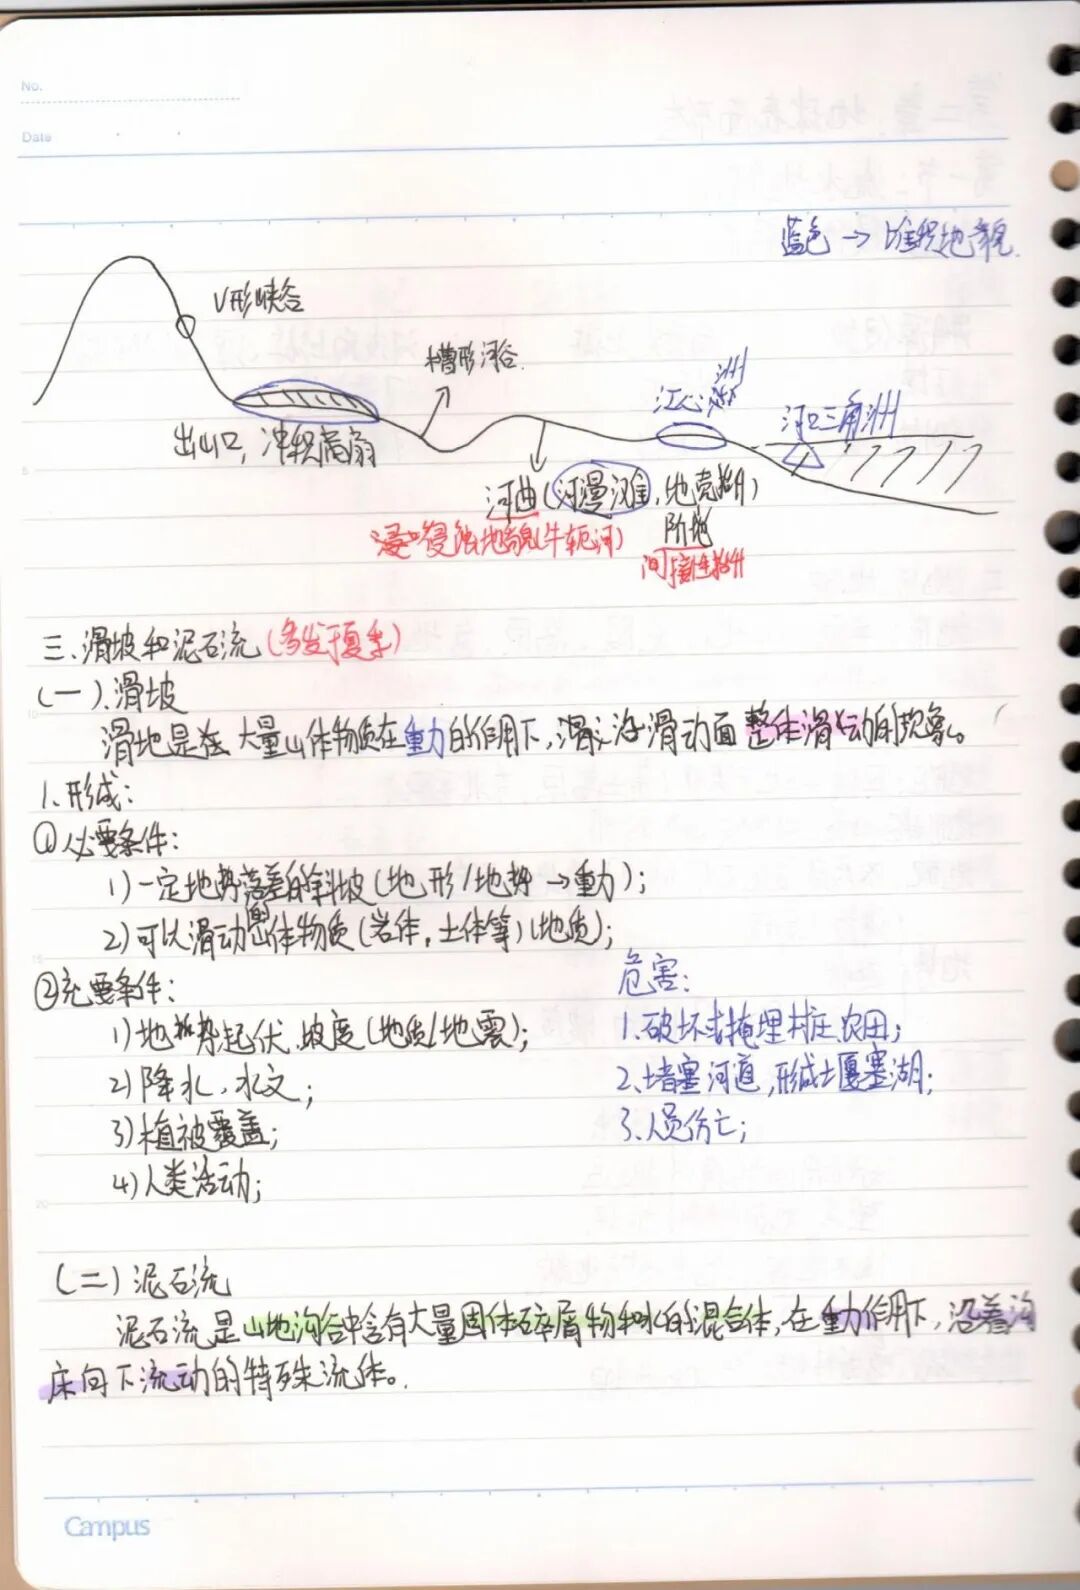 No.
Date
蓝色 → 堆积地貌.
V形峡谷
槽形河谷.
江心洲
河口三角洲
出山口, 冲积扇
河曲(河漫滩, 地壳抬升)
侵蚀地貌(牛轭河)
阶地
间接性抬升
三、滑坡和泥石流(多发于夏季)
(一).滑坡
滑地是在 大量山体物质在重力的作用下, 沿滑动面 整体滑动的现象。
1、形成:
①必要条件:
1)一定地势落差的斜坡(地形/地势→重力);
2)可以滑动的山体物质(岩体, 土体等)(地质);
②充要条件:
危害:
1)地势起伏、坡度(地质/地震);
1、破坏或掩埋村庄、农田;
2)降水、水文;
2、堵塞河道,形成堰塞湖;
3)植被覆盖;
3、人员伤亡;
4)人类活动;
(二)泥石流
泥石流是山地沟谷中含有大量固体碎屑物和水的混合体,在重力作用下, 沿着沟
床向下流动的特殊流体。
Campus